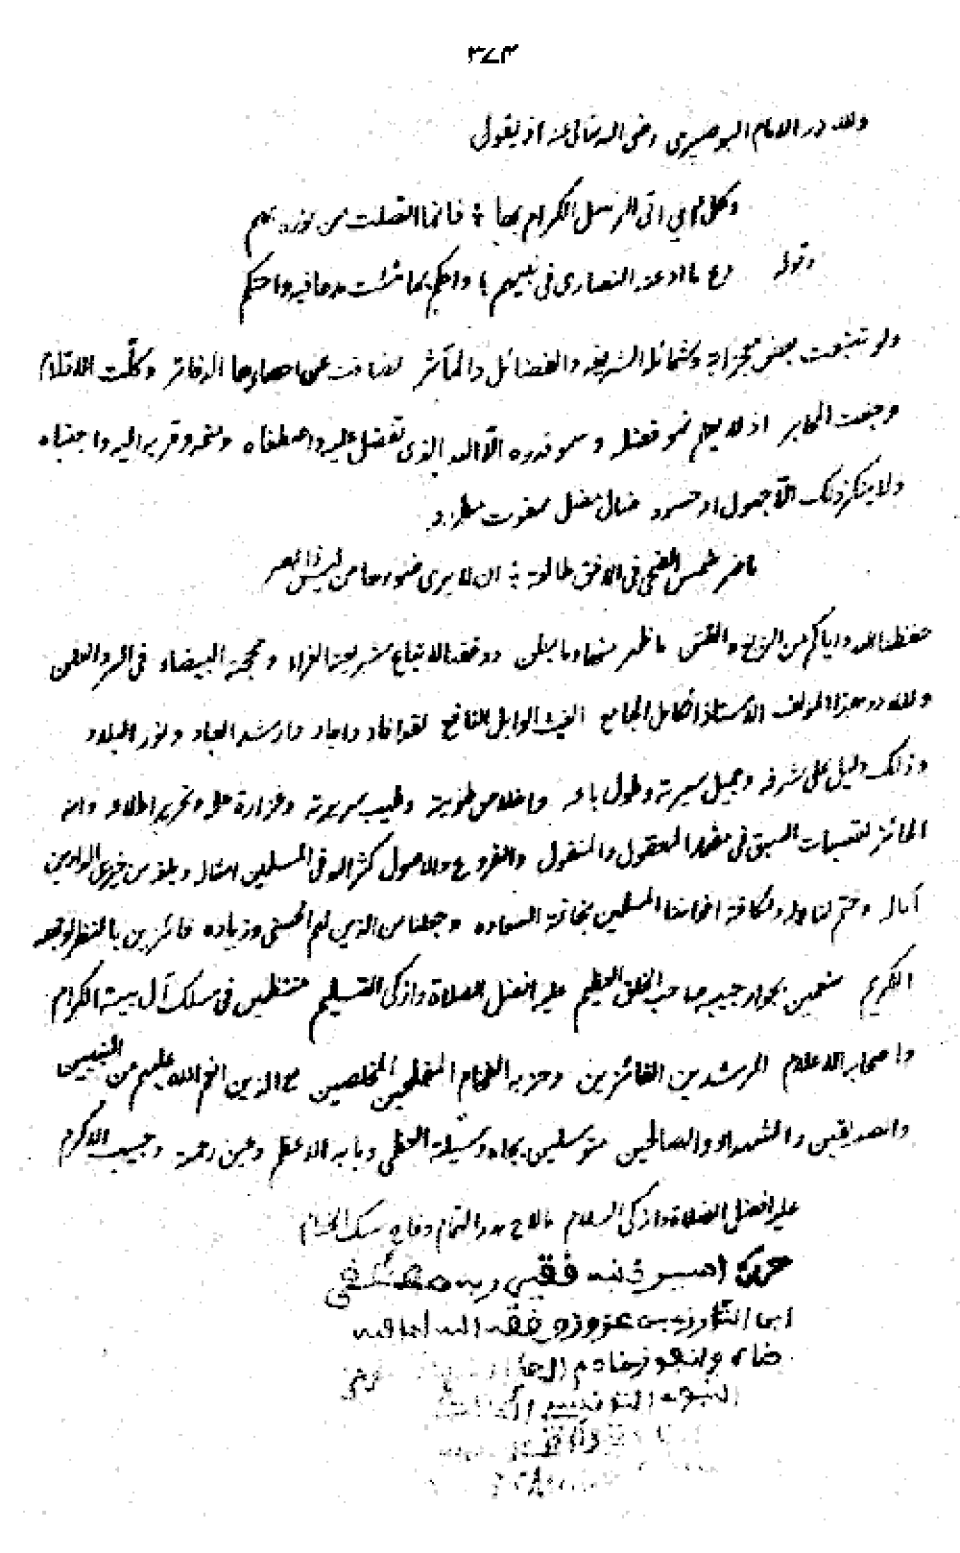 ٣٧٤
ولله در الامام البوصيري رضي الله تعالى عنه اذ يقول
وكل آي اتى الرسل الكرام بها ❊ فانما اتصلت من نوره بهم
وقوله دع ما ادعته النصارى في نبيهم ❊ واحكم بما شئت مدحا فيه واحتكم
ولو تتبعت بعض معجزاته وشمائله الشريفة والفضائل والمآثر لضاقت عن احصارها الدفاتر وكلّت الاقلام
وجفت المحابر اذ لا يعلم نمو فضله وسمو قدره الّا الله الذي تفضل عليه واصطفاه ومنحه وقربه اليه واجتباه
ولا ينكر ذلك الّا جهول او حسود ضال مضل ممقوت مطرود
ما ضر شمس الضحى في الافق طالعة ❊ ان لا يرى ضوءها من ليس ذا بصر
حفظنا الله واياكم من الزيغ والفتن ما ظهر منها وما بطن ووفقنا لاتباع شريعته الغراء ومحجته البيضاء في السر والعلن
ولله در هذا المؤلف الاستاذ الكامل الجامع الغيث الوابل النافع لقد افاد واجاد وارشد العباد ونور البلاد
وذلك دليل على شرفه وجميل سيرته وطول باعه واخلاص طويته وطيب سريرته وغزارة علمه وتحرير اطلاعه وانه
الحائز لقصبات السبق في مضمار المعقول والمنقول والفروع والاصول كثر الله في المسلمين امثاله وبلغه من خيري الدارين
آماله وختم لنا وله ولكافة اخواننا المسلمين بخاتمة السعادة وجعلنا من الذين لهم الحسنى وزيادة فائزين بالنظر لوجهه
الكريم منعمين بجوار حبيبه صاحب الخلق العظيم عليه افضل الصلاة وازكى التسليم منتظمين في سلك آل بيته الكرام
واصحابه الاعلام المرشدين الفائزين وحزبه الفخام المفلحين المخلصين مع الذين انعم الله عليهم من النبيين
والصديقين والشهداء والصالحين متوسلين بجاه وسيلته العظمى وبابه الاعظم وعين رحمته وحبيبه الاكرم
عليه افضل الصلاة وازكى السلام ما لاح بدر التمام وفاح مسك الختام
حرره اسير ذنبه فقير ربه مصطفى
ابن التارزي بن عزوز وفقه الله لما فيه
رضاه